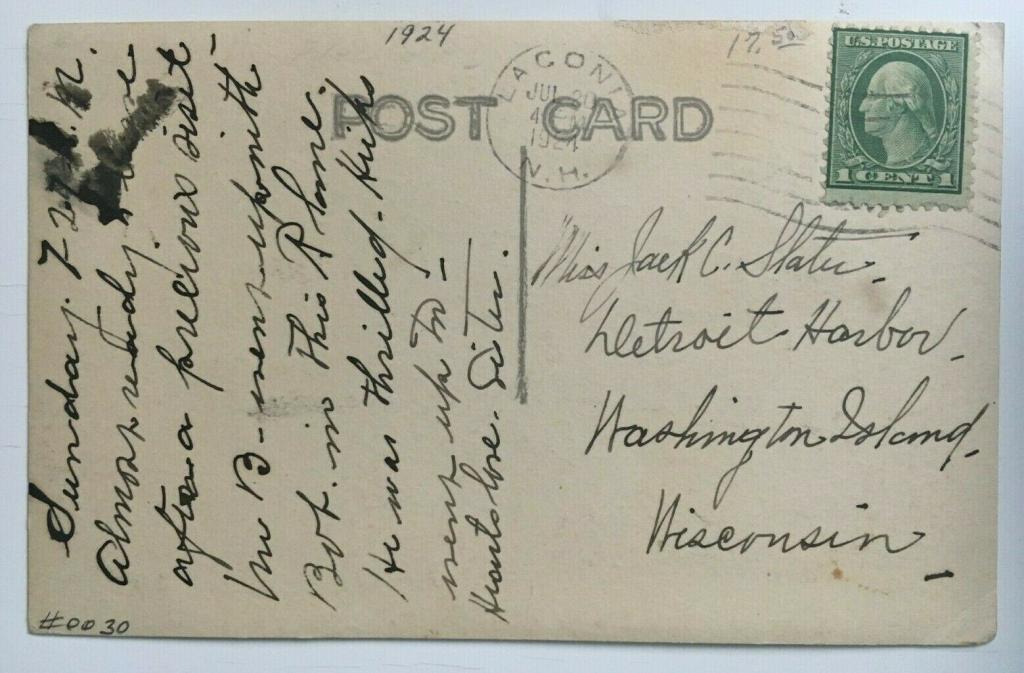 1924
17.50
U.S. POSTAGE
1 CENT 1
LACONIA
JUL 20
4
1924
N.H.
POST CARD
Sunday. 7 P.M.
Almost ready
after a precious visit
Mr B- went up with
Bot. in this Plane.
He was thrilled.
went up to-
Hearts love. Sister.
Miss Jack C. Slater.
Detroit Harbor.
Washington Island.
Wisconsin
#0030